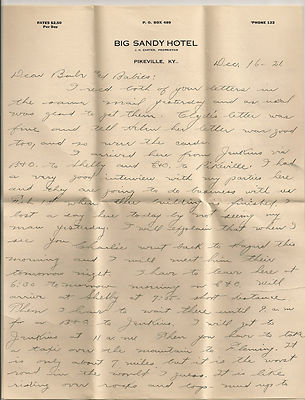 RATES $2.50
Per Day
P. O. BOX 480
'PHONE 133
BIG SANDY HOTEL
J. H. CARTER, PROPRIETOR
PIKEVILLE, KY.,
Dec. 16 - 21
Dear and Babies:
I rec'd both of your letters in
the same mail yesterday and as usual
was glad to get them. Clyde's letter was
fine and tell her letter was good
too, and so were the cards.
I arrived here from Jenkins via
B&O. to Shelby and C&O. to Pikeville. I had
a very good interview with my parties here
and they are going to do business with us
when their building is finished. I
lost a day here today by not seeing my
man yesterday. I will explain that when I
see you. Charlie went back to this
morning and I will meet him there
tomorrow night. I have to leave here at
6:00 tomorrow morning on C&O will
arrive at Shelby at 7:00. short distance.
Then I have to wait there until 8 a.m.
for a B&O to Jenkins. I will get to
Jenkins at 11 a.m. then you have to take
a taxi over the mountain to Fleming. It
is only about 7 miles but it is the worst
road in the world I guess. It is like
riding over rocks and mud up to